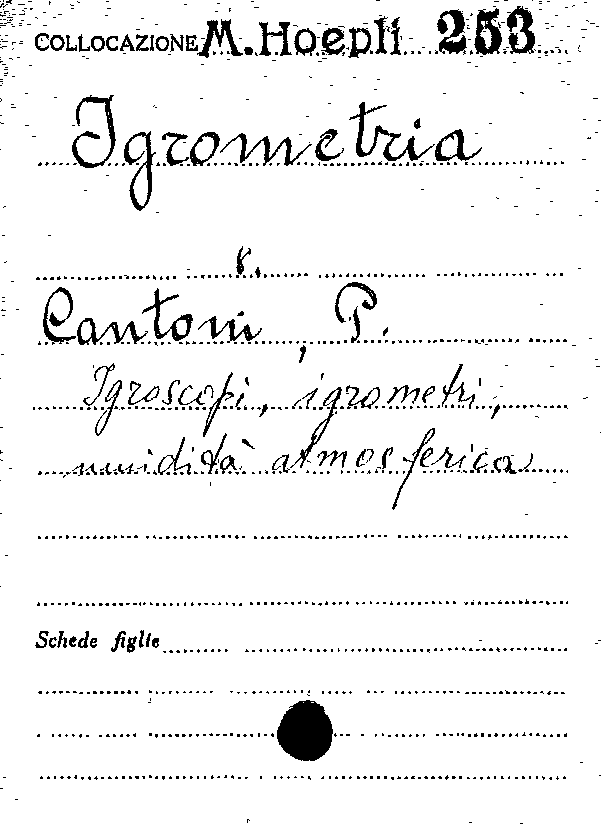 COLLOCAZIONE M. Hoepli 253
Igrometria
v.
Cantoni, P.
Igroscopi, igrometri,
umidità atmosferica
Schede figlie